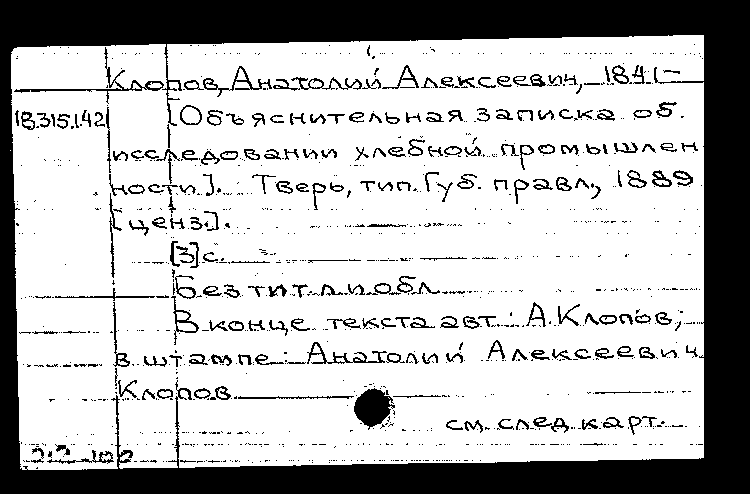 Клопов, Анатолий Алексеевич, 1841-
18.315.142 [Объяснительная записка об.
исследовании хлебной промышлен
ности]. Тверь, тип. Губ. правл., 1889
[ценз.].
[3] с.
Без тит. л. и обл.
В конце текста авт.: А. Клопов;
в штампе: Анатолий Алексеевич
Клопов
см. след. карт.